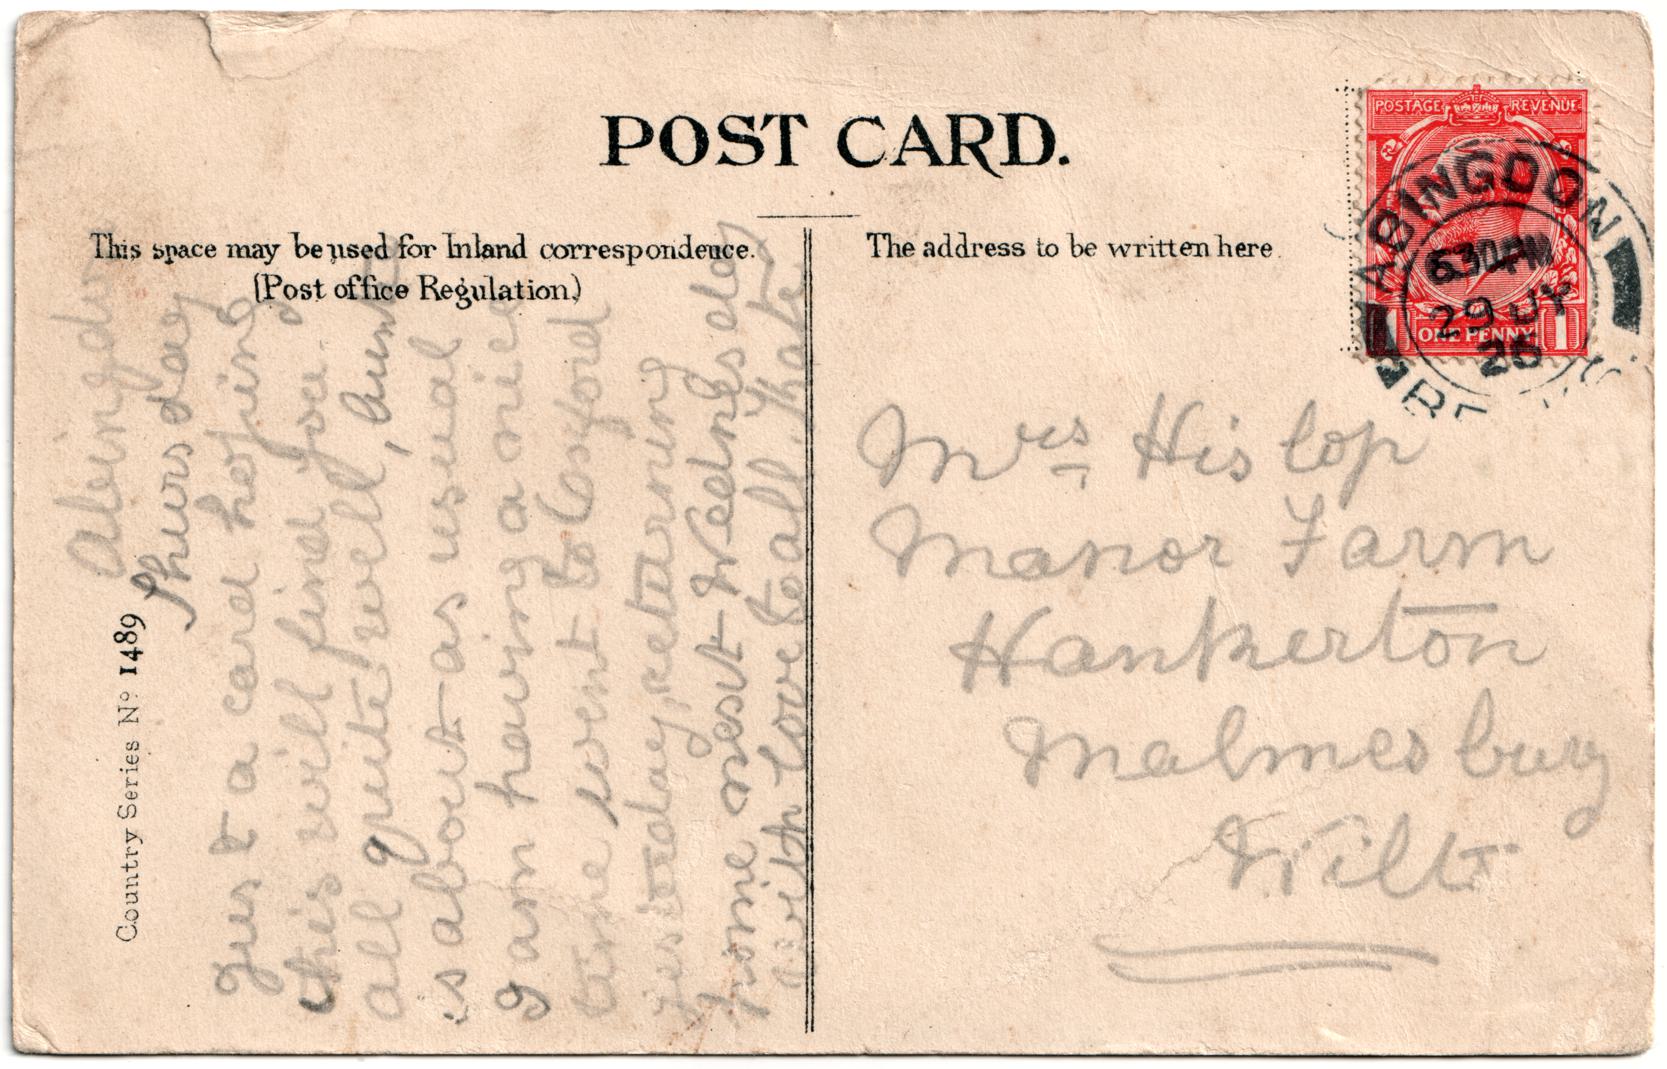 POST CARD.
This space may be used for Inland correspondence.
(Post office Regulation)
The address to be written here
POSTAGE REVENUE
ONE PENNY
1 1
ABINGDON
6.30 PM
29 JY
26
Abingdon
Thursday
Just a card hoping
this will find you
all quite well, Aunt
is about as usual
I am having a nice
time went to Oxford
yesterday, returning
home next Wednesday
with love to all,
Country Series No 1489
Mrs Hislop
Manor Farm
Hankerton
Malmesbury
Wilts